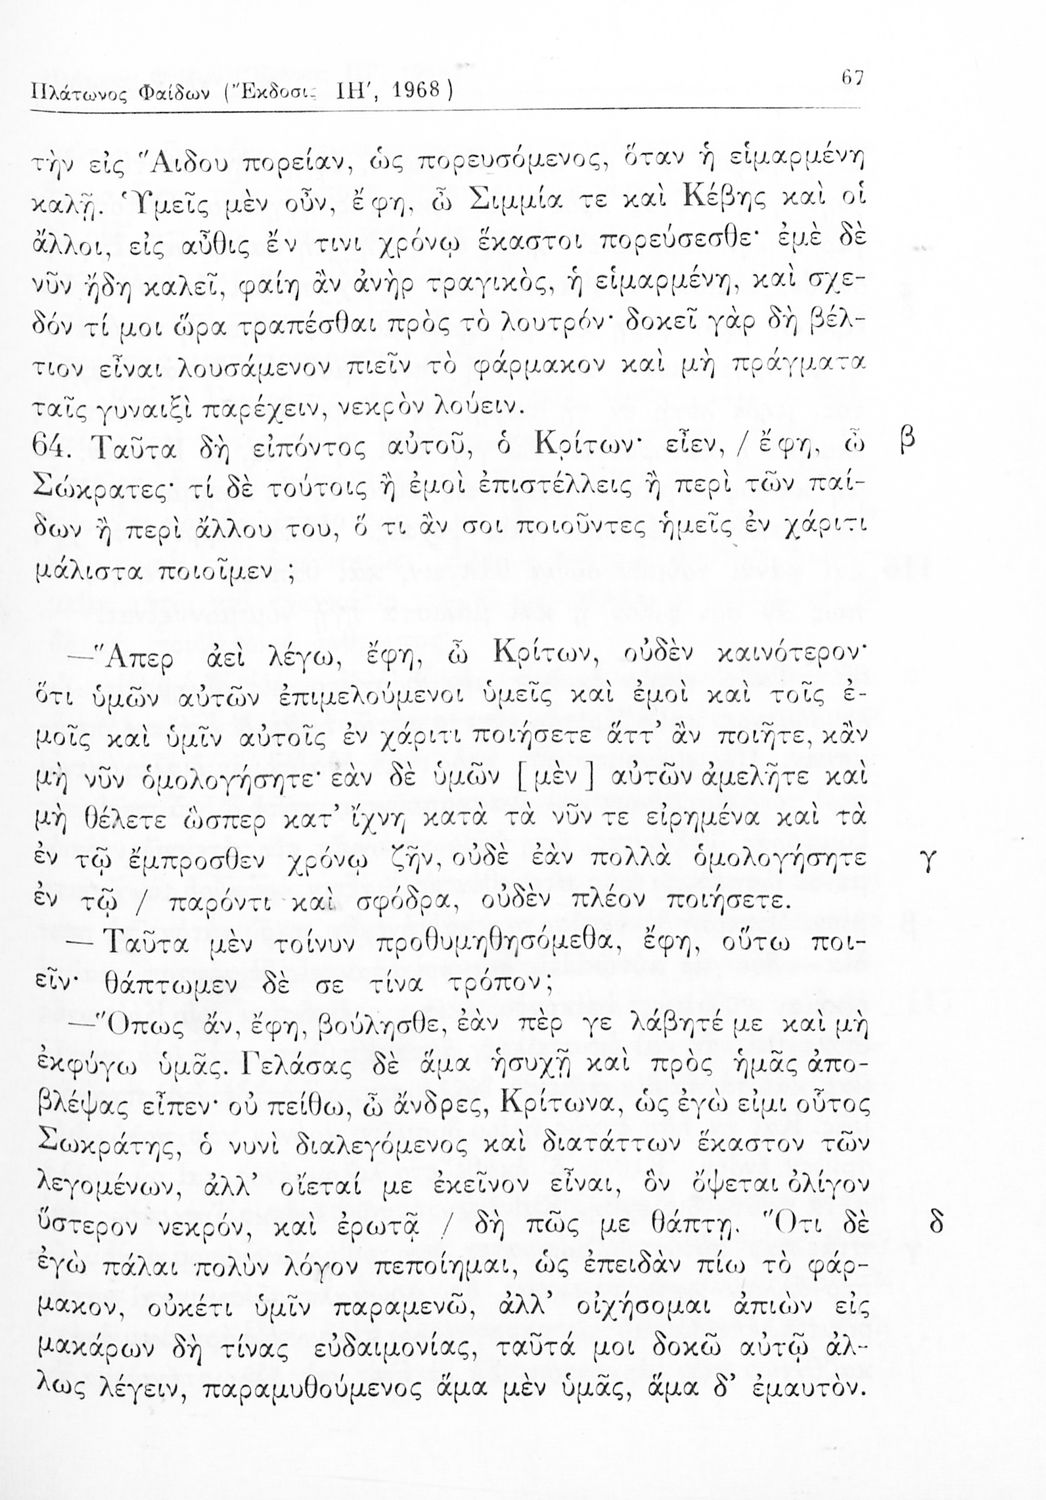 Πλάτωνος Φαίδων (Ἔκδοσις ΙΗ', 1968)
67
τὴν εἰς Ἅιδου πορείαν, ὡς πορευσόμενος, ὅταν ἡ εἱμαρμένη
καλῇ. Ὑμεῖς μὲν οὖν, ἔφη, ὦ Σιμμία τε καὶ Κέβης καὶ οἱ
ἄλλοι, εἰς αὖθις ἔν τινι χρόνῳ ἕκαστοι πορεύσεσθε· ἐμὲ δὲ
νῦν ἤδη καλεῖ, φαίη ἂν ἀνὴρ τραγικὸς, ἡ εἱμαρμένη, καὶ σχε-
δόν τί μοι ὥρα τραπέσθαι πρὸς τὸ λουτρόν· δοκεῖ γὰρ δὴ βέλ-
τιον εἶναι λουσάμενον πιεῖν τὸ φάρμακον καὶ μὴ πράγματα
ταῖς γυναιξὶ παρέχειν, νεκρὸν λούειν.
64. Ταῦτα δὴ εἰπόντος αὐτοῦ, ὁ Κρίτων· εἶεν, / ἔφη, ὦ β
Σώκρατες· τί δὲ τούτοις ἢ ἐμοὶ ἐπιστέλλεις ἢ περὶ τῶν παί-
δων ἢ περὶ ἄλλου του, ὅ τι ἄν σοι ποιοῦντες ἡμεῖς ἐν χάριτι
μάλιστα ποιοῖμεν ;
—Ἅπερ ἀεὶ λέγω, ἔφη, ὦ Κρίτων, οὐδὲν καινότερον·
ὅτι ὑμῶν αὐτῶν ἐπιμελούμενοι ὑμεῖς καὶ ἐμοὶ καὶ τοῖς ἐ-
μοῖς καὶ ὑμῖν αὐτοῖς ἐν χάριτι ποιήσετε ἅττ' ἂν ποιῆτε, κἂν
μὴ νῦν ὁμολογήσητε· ἐὰν δὲ ὑμῶν [μὲν] αὐτῶν ἀμελῆτε καὶ
μὴ θέλετε ὥσπερ κατ' ἴχνη κατὰ τὰ νῦν τε εἰρημένα καὶ τὰ
ἐν τῷ ἔμπροσθεν χρόνῳ ζῆν, οὐδὲ ἐὰν πολλὰ ὁμολογήσητε γ
ἐν τῷ / παρόντι καὶ σφόδρα, οὐδὲν πλέον ποιήσετε.
— Ταῦτα μὲν τοίνυν προθυμηθησόμεθα, ἔφη, οὕτω ποι-
εῖν· θάπτωμεν δὲ σε τίνα τρόπον;
—Ὅπως ἄν, ἔφη, βούλησθε, ἐάν πὲρ γε λάβητέ με καὶ μὴ
ἐκφύγω ὑμᾶς. Γελάσας δὲ ἅμα ἡσυχῇ καὶ πρὸς ἡμᾶς ἀπο-
βλέψας εἶπεν· οὐ πείθω, ὦ ἄνδρες, Κρίτωνα, ὡς ἐγὼ εἰμι οὗτος
Σωκράτης, ὁ νυνὶ διαλεγόμενος καὶ διατάττων ἕκαστον τῶν
λεγομένων, ἀλλ' οἴεταί με ἐκεῖνον εἶναι, ὃν ὄψεται ὀλίγον
ὕστερον νεκρόν, καὶ ἐρωτᾷ / δὴ πῶς με θάπτῃ. Ὅτι δὲ δ
ἐγὼ πάλαι πολὺν λόγον πεποίημαι, ὡς ἐπειδὰν πίω τὸ φάρ-
μακον, οὐκέτι ὑμῖν παραμενῶ, ἀλλ' οἰχήσομαι ἀπιὼν εἰς
μακάρων δὴ τίνας εὐδαιμονίας, ταῦτά μοι δοκῶ αὐτῷ ἀλ-
λως λέγειν, παραμυθούμενος ἅμα μὲν ὑμᾶς, ἅμα δ' ἐμαυτὸν.